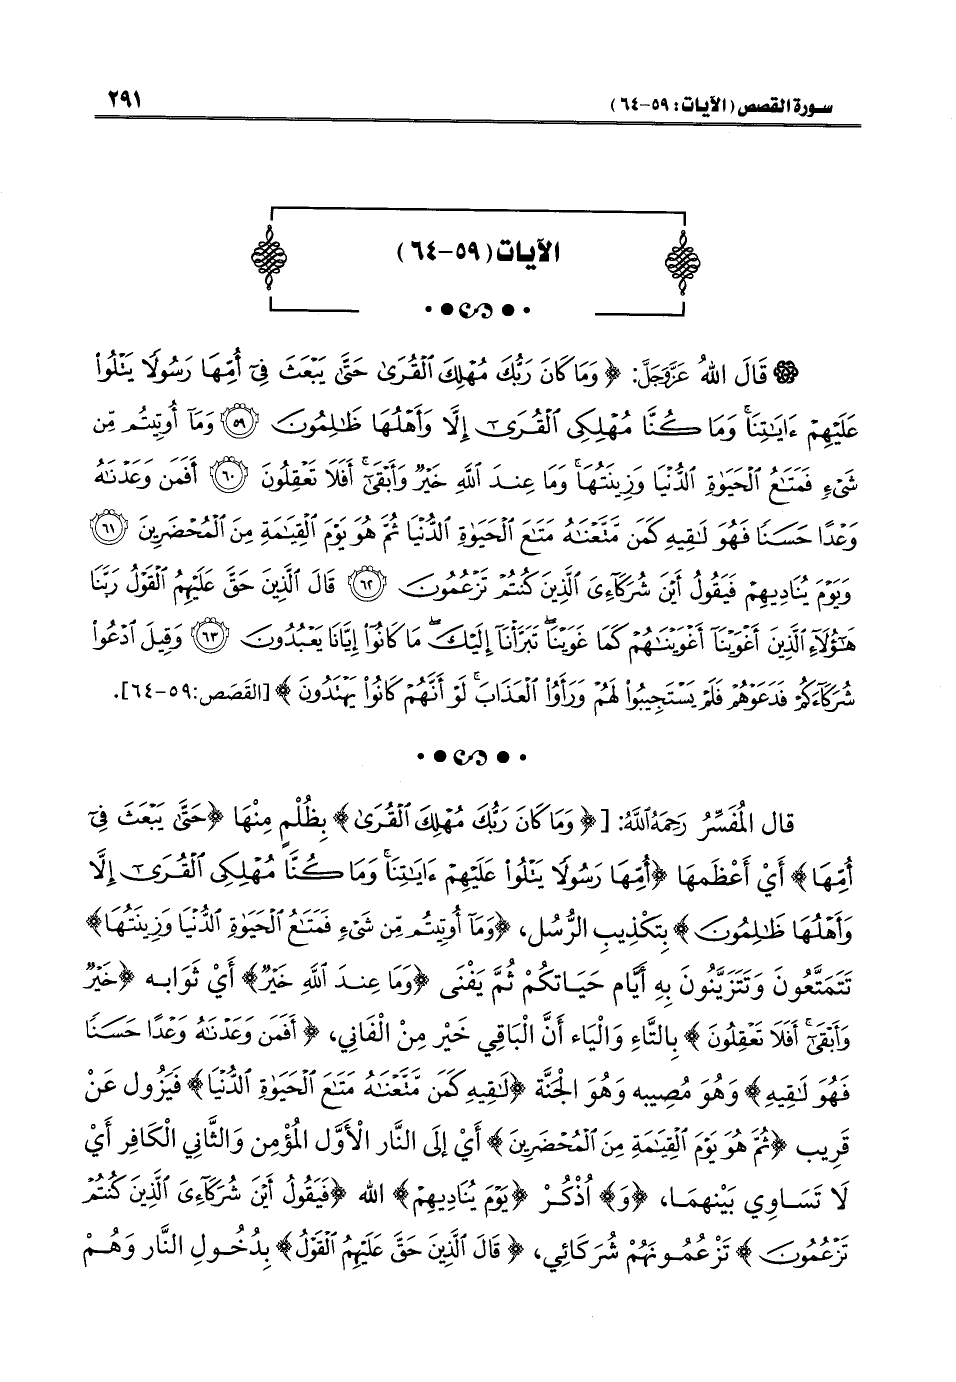 سورة القصص (الآيات: ٥٩-٦٤) ٢٩١
الآيات (٥٩-٦٤)
قَالَ اللهُ عَزَّوَجَلَّ: ﴿ وَمَا كَانَ رَبُّكَ مُهْلِكَ ٱلْقُرَىٰ حَتَّىٰ يَبْعَثَ فِىٓ أُمِّهَا رَسُولًا يَتْلُوا۟
عَلَيْهِمْ ءَايَٰتِنَا ۚ وَمَا كُنَّا مُهْلِكِى ٱلْقُرَىٰٓ إِلَّا وَأَهْلُهَا ظَٰلِمُونَ ٥٩ وَمَآ أُوتِيتُم مِّن
شَىْءٍ فَمَتَٰعُ ٱلْحَيَوٰةِ ٱلدُّنْيَا وَزِينَتُهَا ۚ وَمَا عِندَ ٱللَّهِ خَيْرٌ وَأَبْقَىٰٓ ۚ أَفَلَا تَعْقِلُونَ ٦٠ أَفَمَن وَعَدْنَٰهُ
وَعْدًا حَسَنًا فَهُوَ لَٰقِيهِ كَمَن مَّتَّعْنَٰهُ مَتَٰعَ ٱلْحَيَوٰةِ ٱلدُّنْيَا ثُمَّ هُوَ يَوْمَ ٱلْقِيَٰمَةِ مِنَ ٱلْمُحْضَرِينَ ٦١
وَيَوْمَ يُنَادِيهِمْ فَيَقُولُ أَيْنَ شُرَكَآءِىَ ٱلَّذِينَ كُنتُمْ تَزْعُمُونَ ٦٢ قَالَ ٱلَّذِينَ حَقَّ عَلَيْهِمُ ٱلْقَوْلُ رَبَّنَا
هَٰٓؤُلَآءِ ٱلَّذِينَ أَغْوَيْنَآ أَغْوَيْنَٰهُمْ كَمَا غَوَيْنَا ۖ تَبَرَّأْنَآ إِلَيْكَ ۖ مَا كَانُوٓا۟ إِيَّانَا يَعْبُدُونَ ٦٣ وَقِيلَ ٱدْعُوا۟
شُرَكَآءَكُمْ فَدَعَوْهُمْ فَلَمْ يَسْتَجِيبُوا۟ لَهُمْ وَرَأَوُا۟ ٱلْعَذَابَ ۚ لَوْ أَنَّهُمْ كَانُوا۟ يَهْتَدُونَ ﴾ [القَصَص: ٥٩-٦٤].
قال المُفَسِّرُ رَحِمَهُ ٱللَّهُ: [﴿ وَمَا كَانَ رَبُّكَ مُهْلِكَ ٱلْقُرَىٰ ﴾ بِظُلْمٍ مِنْهَا ﴿حَتَّىٰ يَبْعَثَ فِىٓ
أُمِّهَا﴾ أَيْ أَعْظَمِهَا ﴿أُمِّهَا رَسُولًا يَتْلُوا۟ عَلَيْهِمْ ءَايَٰتِنَا ۚ وَمَا كُنَّا مُهْلِكِى ٱلْقُرَىٰٓ إِلَّا
وَأَهْلُهَا ظَٰلِمُونَ ﴾ بِتَكْذِيبِ الرُّسُلِ، ﴿وَمَآ أُوتِيتُم مِّن شَىْءٍ فَمَتَٰعُ ٱلْحَيَوٰةِ ٱلدُّنْيَا وَزِينَتُهَا﴾
تَتَمَتَّعُونَ وَتَتَزَيَّنُونَ بِهِ أَيَّام حَيَاتكُمْ ثُمَّ يَفْنَى ﴿وَمَا عِندَ ٱللَّهِ خَيْرٌ﴾ أَيْ ثَوَابه ﴿خَيْرٌ
وَأَبْقَىٰٓ ۚ أَفَلَا تَعْقِلُونَ ﴾ بِالتَّاءِ وَالْيَاء أَنَّ الْبَاقِي خَيْر مِنْ الْفَانِي، ﴿ أَفَمَن وَعَدْنَٰهُ وَعْدًا حَسَنًا
فَهُوَ لَٰقِيهِ﴾ وَهُوَ مُصِيبه وَهُوَ الجَنَّة ﴿لَٰقِيهِ كَمَن مَّتَّعْنَٰهُ مَتَٰعَ ٱلْحَيَوٰةِ ٱلدُّنْيَا﴾ فَيَزُول عَنْ
قَرِيب ﴿ثُمَّ هُوَ يَوْمَ ٱلْقِيَٰمَةِ مِنَ ٱلْمُحْضَرِينَ ﴾ أَيْ إِلَى النَّار الْأَوَّل المُؤْمِن وَالثَّانِي الْكَافِر أَيْ
لَا تَسَاوِي بَيْنهمَا، ﴿وَ﴾ اُذْكُرْ ﴿يَوْمَ يُنَادِيهِمْ﴾ الله ﴿فَيَقُولُ أَيْنَ شُرَكَآءِىَ ٱلَّذِينَ كُنتُمْ
تَزْعُمُونَ ﴾ تَزْعُمُونَهُمْ شُرَكَائِي، ﴿ قَالَ ٱلَّذِينَ حَقَّ عَلَيْهِمُ ٱلْقَوْلُ ﴾ بِدُخُولِ النَّار وَهُمْ